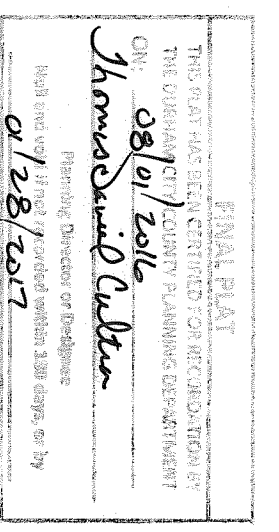 FINAL PLAT
THIS PLAT HAS BEEN CERTIFIED FOR RECORDATION BY
THE DURHAM CITY/COUNTY PLANNING DEPARTMENT
ON: 08/01/2016
Thomas Daniel Cultra
Planning Director or Designee
Null and void if not recorded within 180 days, or by
01/28/2017